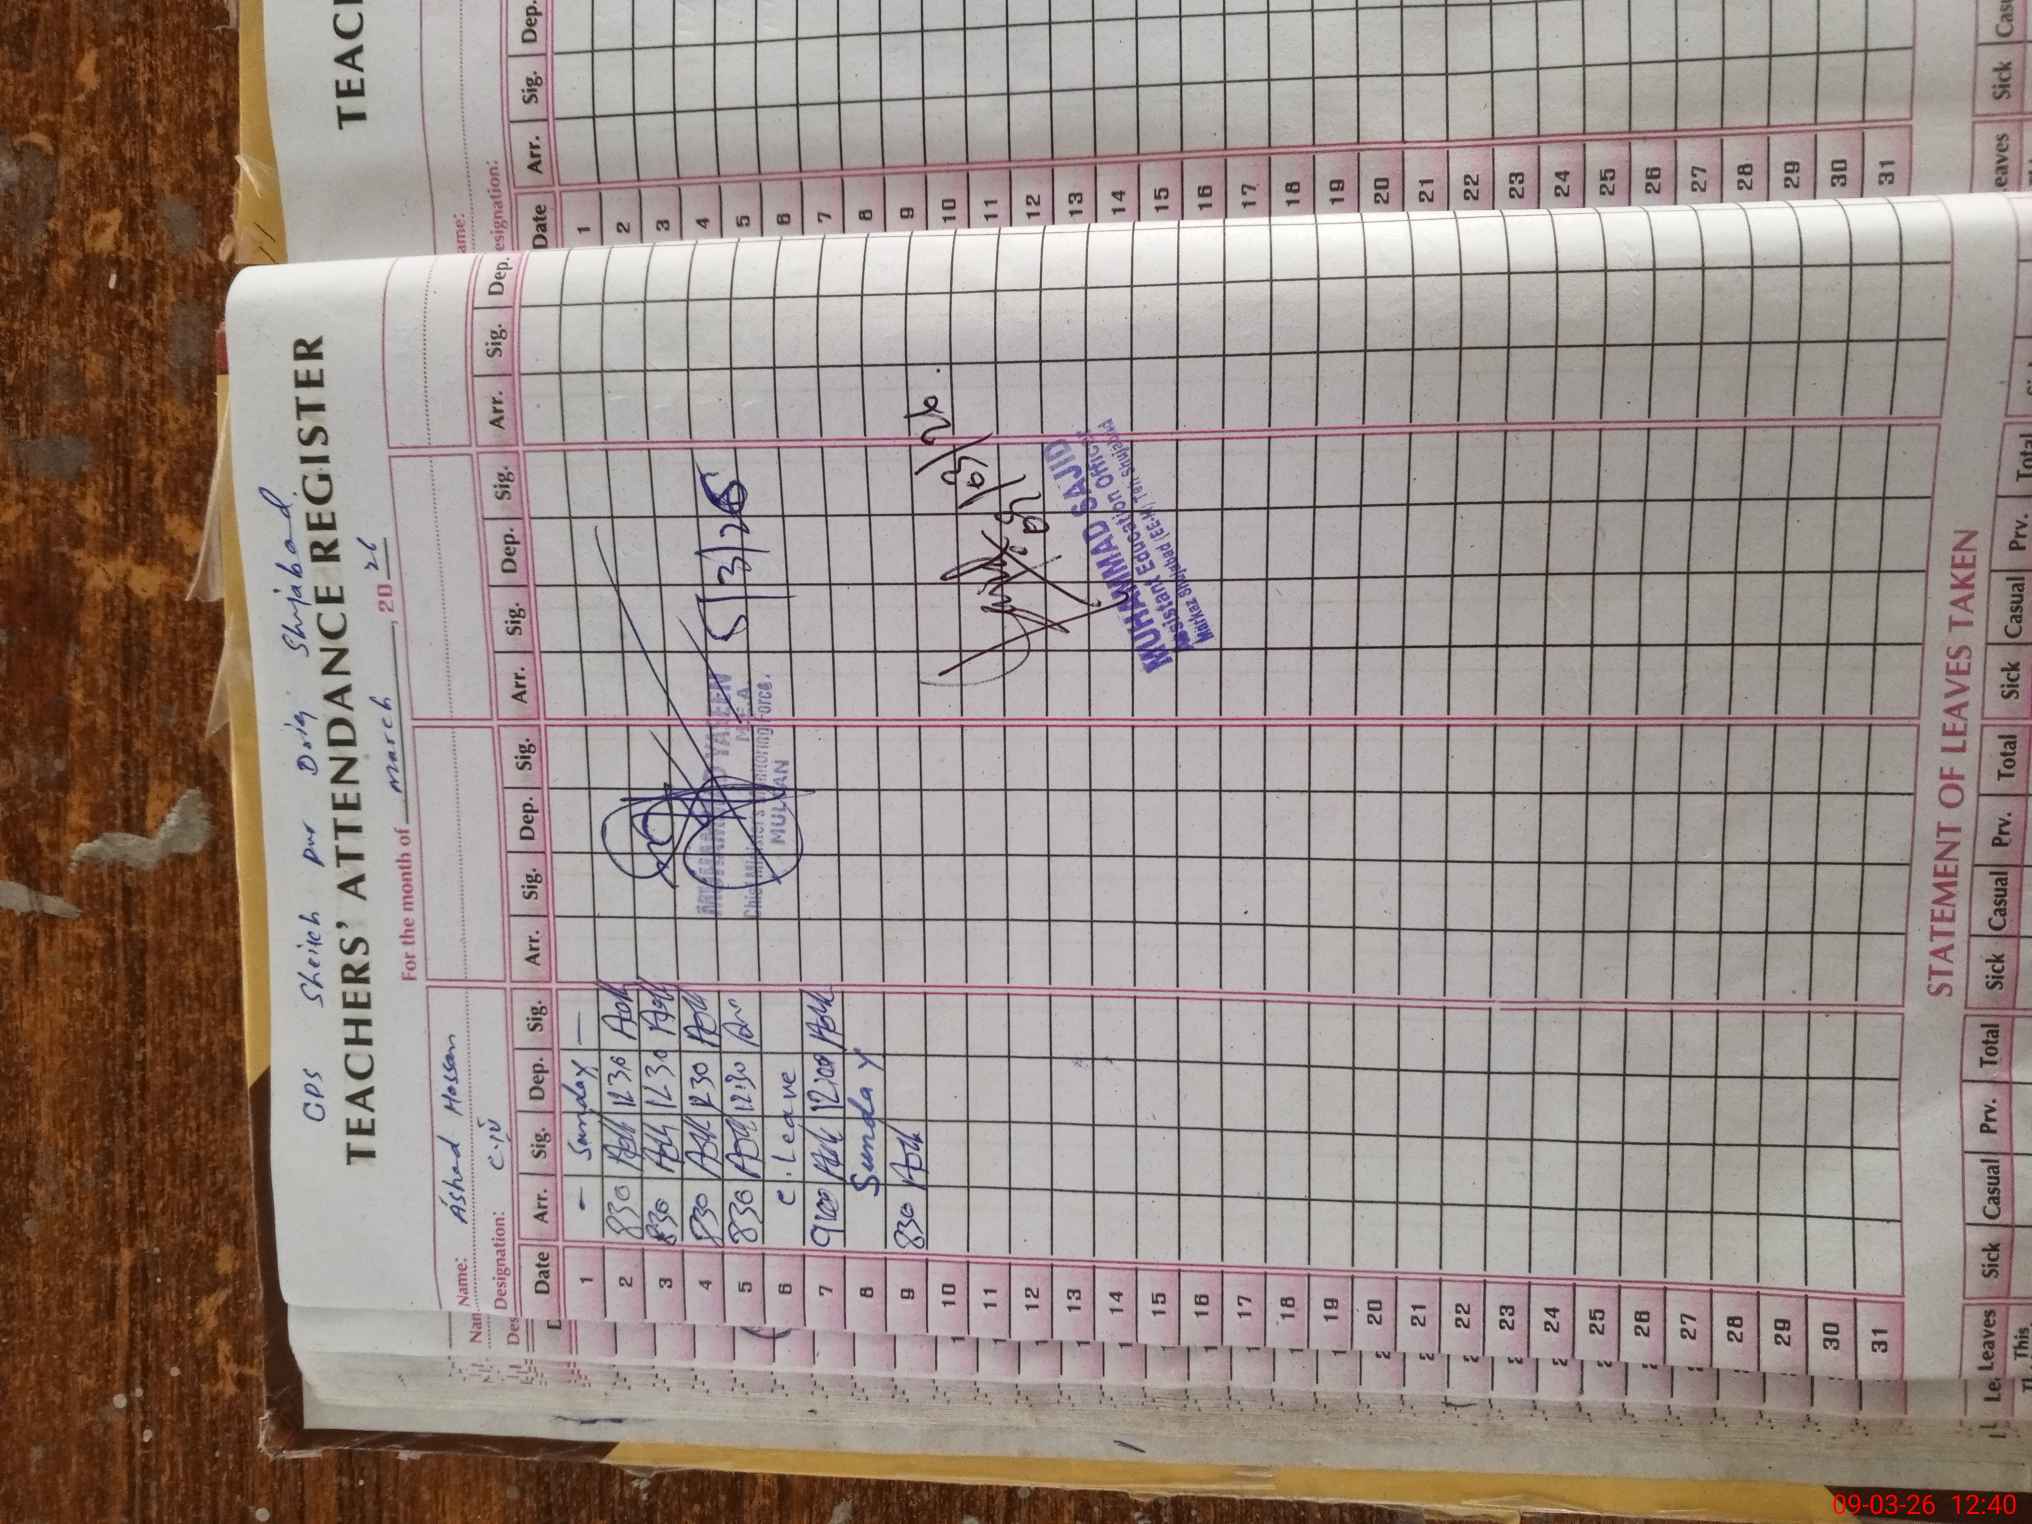 GPS Sheikh pur Drig Shujabad
TEACHERS' ATTENDANCE REGISTER
For the month of march, 20 26
Name: Ashad Hassan
Designation:
Date Arr. Sig. Dep. Sig. Arr. Sig. Dep. Sig. Arr. Sig. Dep. Sig. Arr. Sig. Dep.
1 — Sunday —
2 830 12 30
3 830 12 30
4 830 12 30
5 830 12:30
6 C. Leave
7 9:00 12:00
8 Sunday
9 830
10
11
12
13
14
15
16
17
18
19
20
21
22
23
24
25
26
27
28
29
30
31
YASEEN
M.E.A.
Chief Minister's Monitoring Force.
MULTAN
5/3/26
09/03/26.
MUHAMMAD SAJID
Assistant Education Officer
Markaz Shujabad (EE-M) Teh Shujabad
STATEMENT OF LEAVES TAKEN
Leaves Sick Casual Prv. Total Sick Casual Prv. Total Sick Casual Prv. Total
This
TEAC
ame:
esignation:
Date Arr. Sig. Dep.
1
2
3
4
5
6
7
8
9
10
11
12
13
14
15
16
17
18
19
20
21
22
23
24
25
26
27
28
29
30
31
eaves Sick Cas
09-03-26 12:40